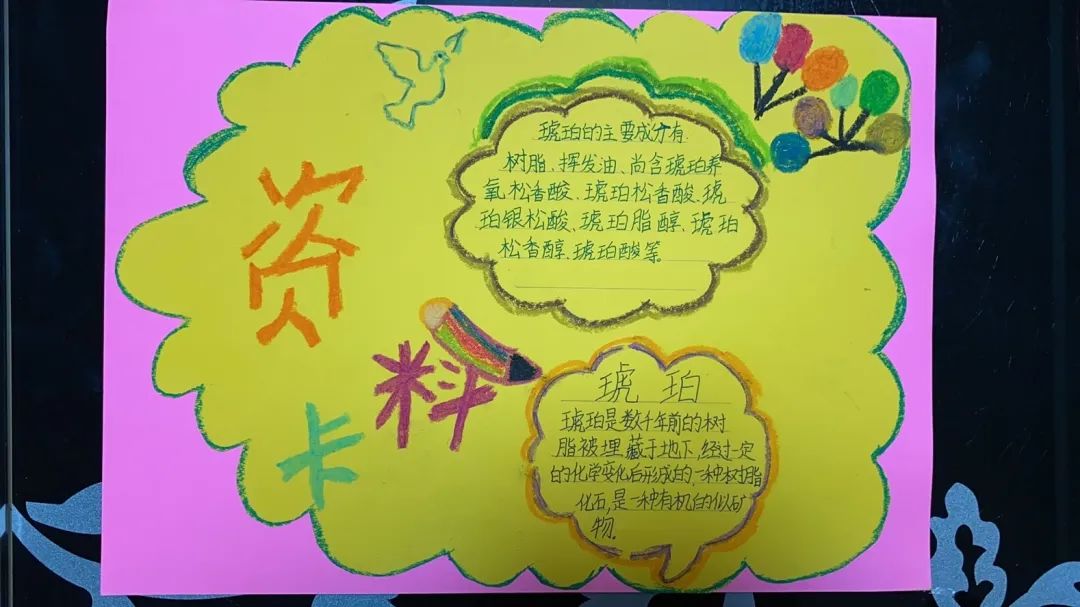 资
料
卡
琥珀的主要成分有
树脂、挥发油、尚含琥珀养
氧松香酸、琥珀松香酸、琥
珀银松酸、琥珀脂醇、琥珀
松香醇、琥珀酸等。
琥珀
琥珀是数千年前的树
脂被埋藏于地下,经过一定
的化学变化后形成的,一种树脂
化石,是一种有机的似矿
物。